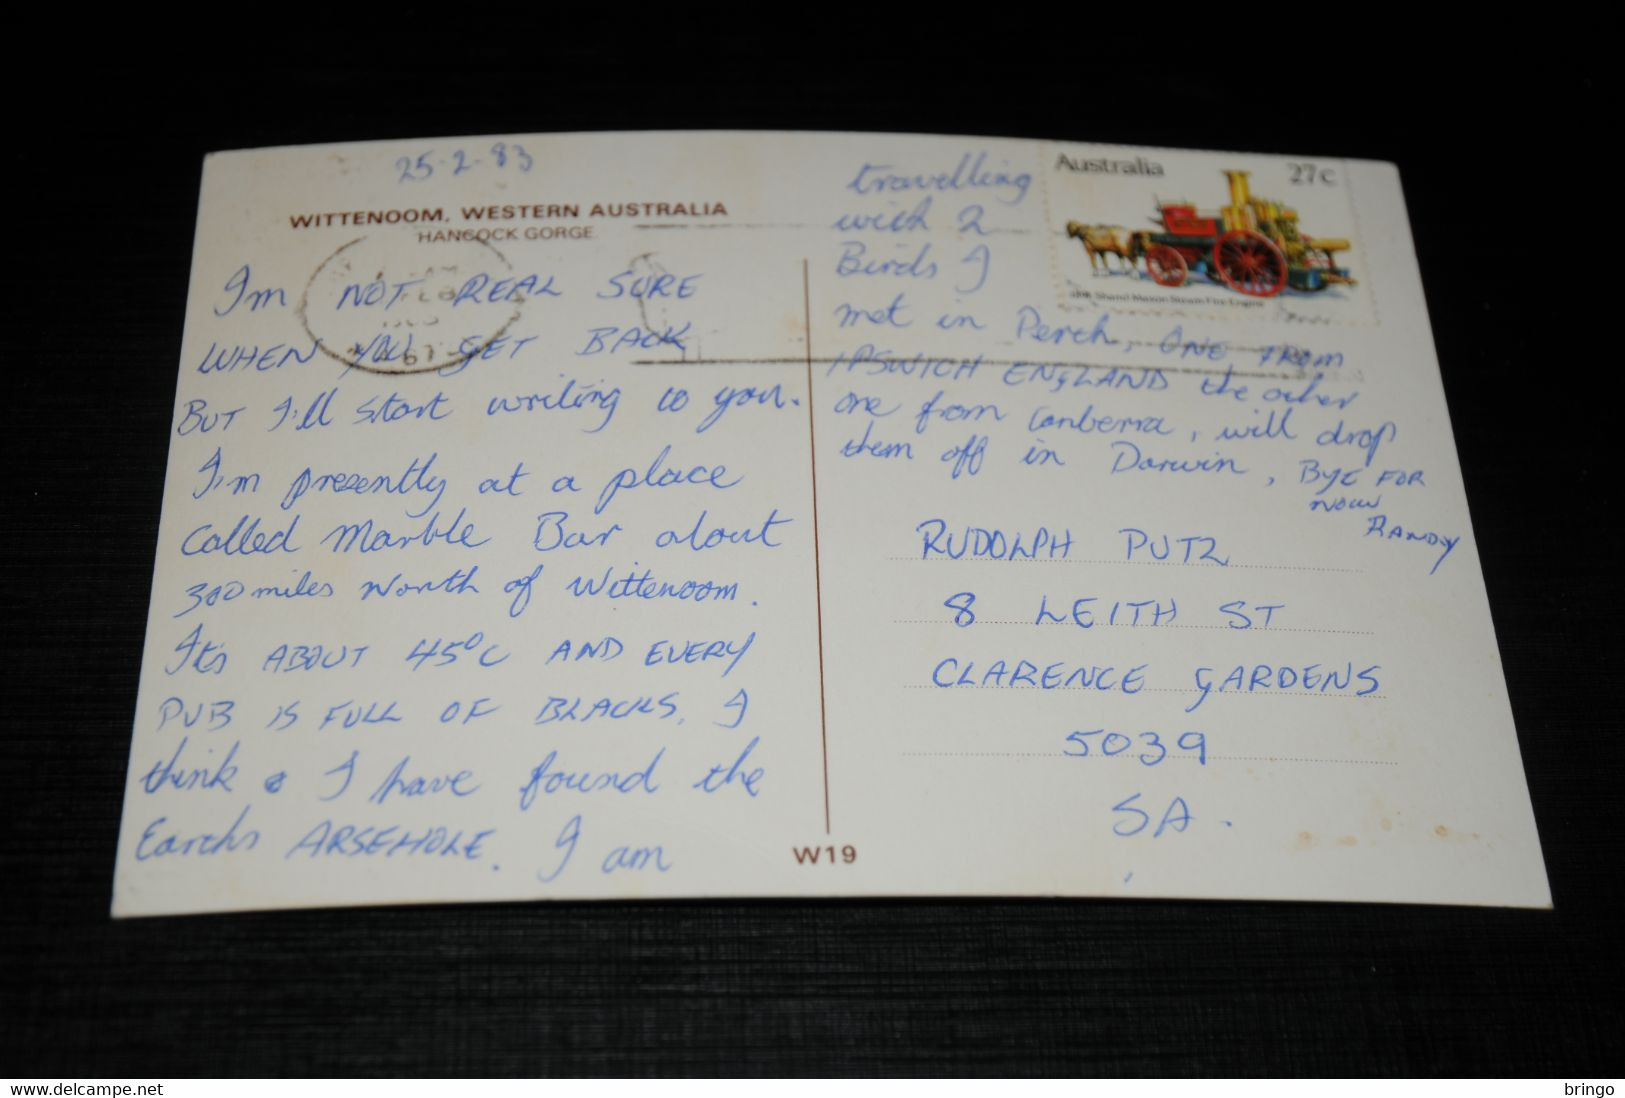 25-2-83
WITTENOOM, WESTERN AUSTRALIA
HANCOCK GORGE
I'm NOT REAL SURE
WHEN YOU GET BACK
BUT I'll start writing to you.
I'm presently at a place
called Marble Bar about
300 miles North of Wittenoom.
It's ABOUT 45°C AND EVERY
PUB IS FULL OF BLACKS. I
think I have found the
Earths ARSEHOLE. I am
travelling
with 2
Birds I
met in Perth, ONE FROM
IPSWICH ENGLAND the other
one from Canberra, will drop
them off in Darwin, BYE FOR
NOW
RANDY
Australia 27c
Shand Mason Steam Fire Engine
RUDOLPH PUTZ
8 LEITH ST
CLARENCE GARDENS
5039
SA.
W19
bringo
© delcampe.net